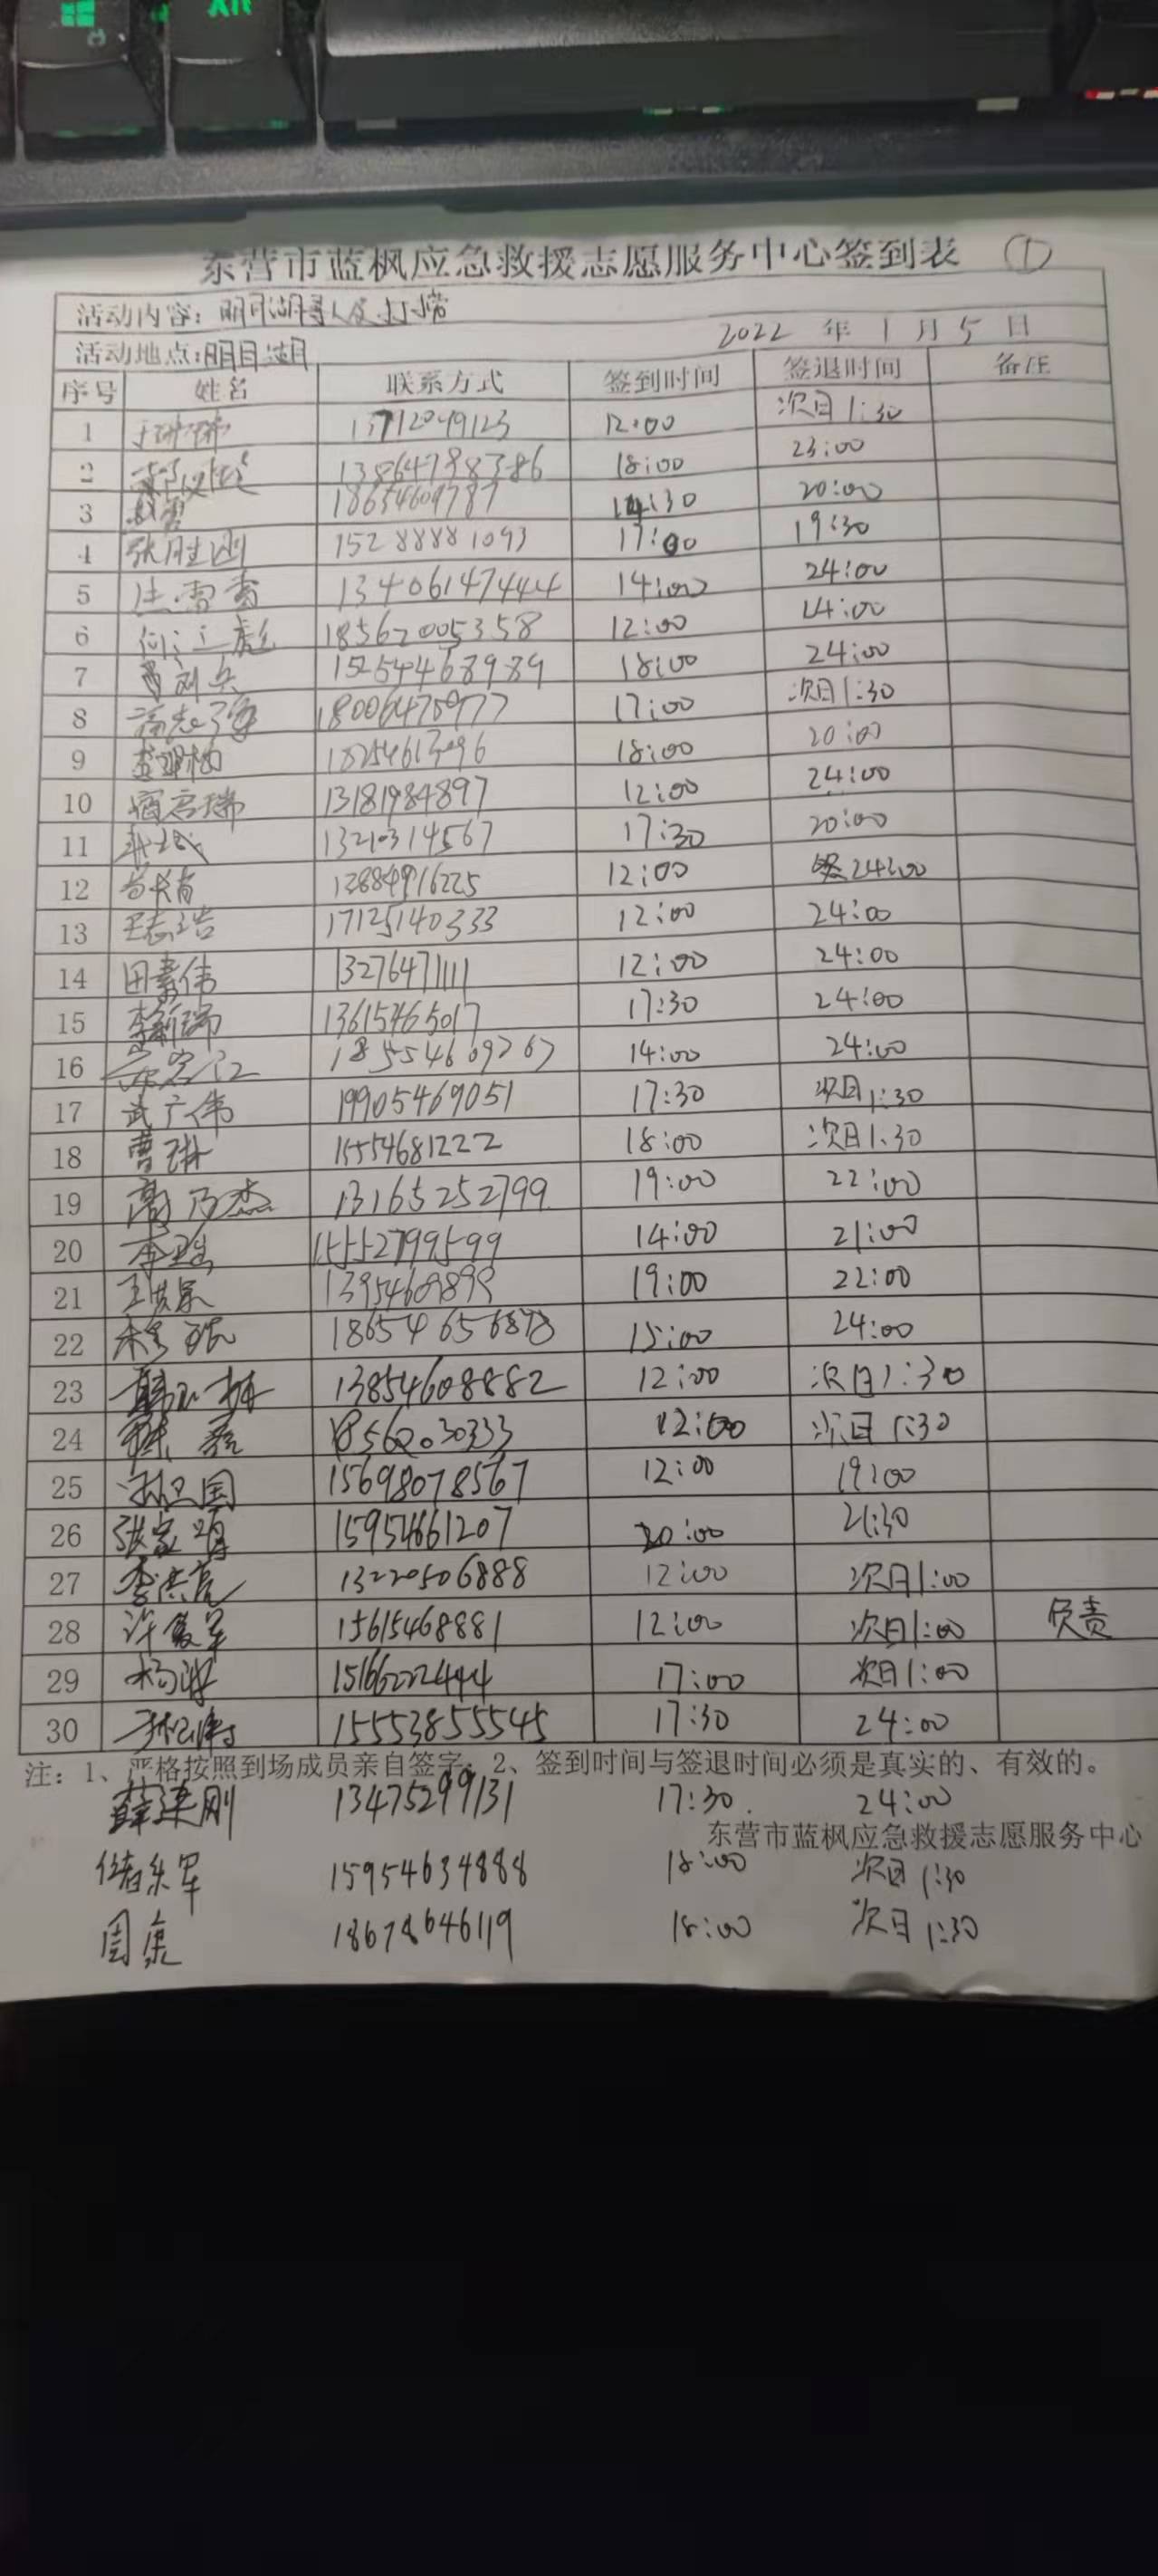 Alt
东营市蓝枫应急救援志愿服务中心签到表 ①
活动内容：明月湖寻人及打捞
2022 年 1 月 5 日
活动地点：明月湖
序号 姓名 联系方式 签到时间 签退时间 备注
1 12:00 次日1:30
2 18:00 23:00
3 18654609787 14:30 20:00
4 张胜利 15288881093 17:00 19:30
5 13406147444 14:00 24:00
6 18562005358 12:00 24:00
7 15254468989 18:00 24:00
8 17:00 次日1:30
9 18254613096 18:00 20:00
10 13181984897 12:00 24:00
11 13210314567 17:30 20:00
12 13884916225 12:00 24:00
13 王志浩 17125140333 12:00 24:00
14 田素伟 13276471111 12:00 24:00
15 李新瑞 13615465017 17:30 24:00
16 18554609767 14:00 24:00
17 武广伟 19905469051 17:30 次日1:30
18 曹琳 15554681222 18:00 次日1:30
19 高乃杰 13165252799 19:00 22:00
20 15552799599 14:00 21:00
21 13954609899 19:00 22:00
22 15:00 24:00
23 13854608882 12:00 次日1:30
24 18562030333 12:00 次日1:30
25 孙卫国 15698078567 12:00 19:00
26 张家明 15954661207 20:00 21:30
27 李洪亮 13220506888 12:00 次日1:00
28 许俊军 15615468881 12:00 次日1:00 负责
29 杨洪 15166222444 17:00 次日1:00
30 15553855545 17:30 24:00
注：1、严格按照到场成员亲自签字；2、签到时间与签退时间必须是真实的、有效的。
薛建刚 13475299131 17:30 24:00
东营市蓝枫应急救援志愿服务中心
15954634888 18:00 次日1:30
周康 18678646119 18:00 次日1:30